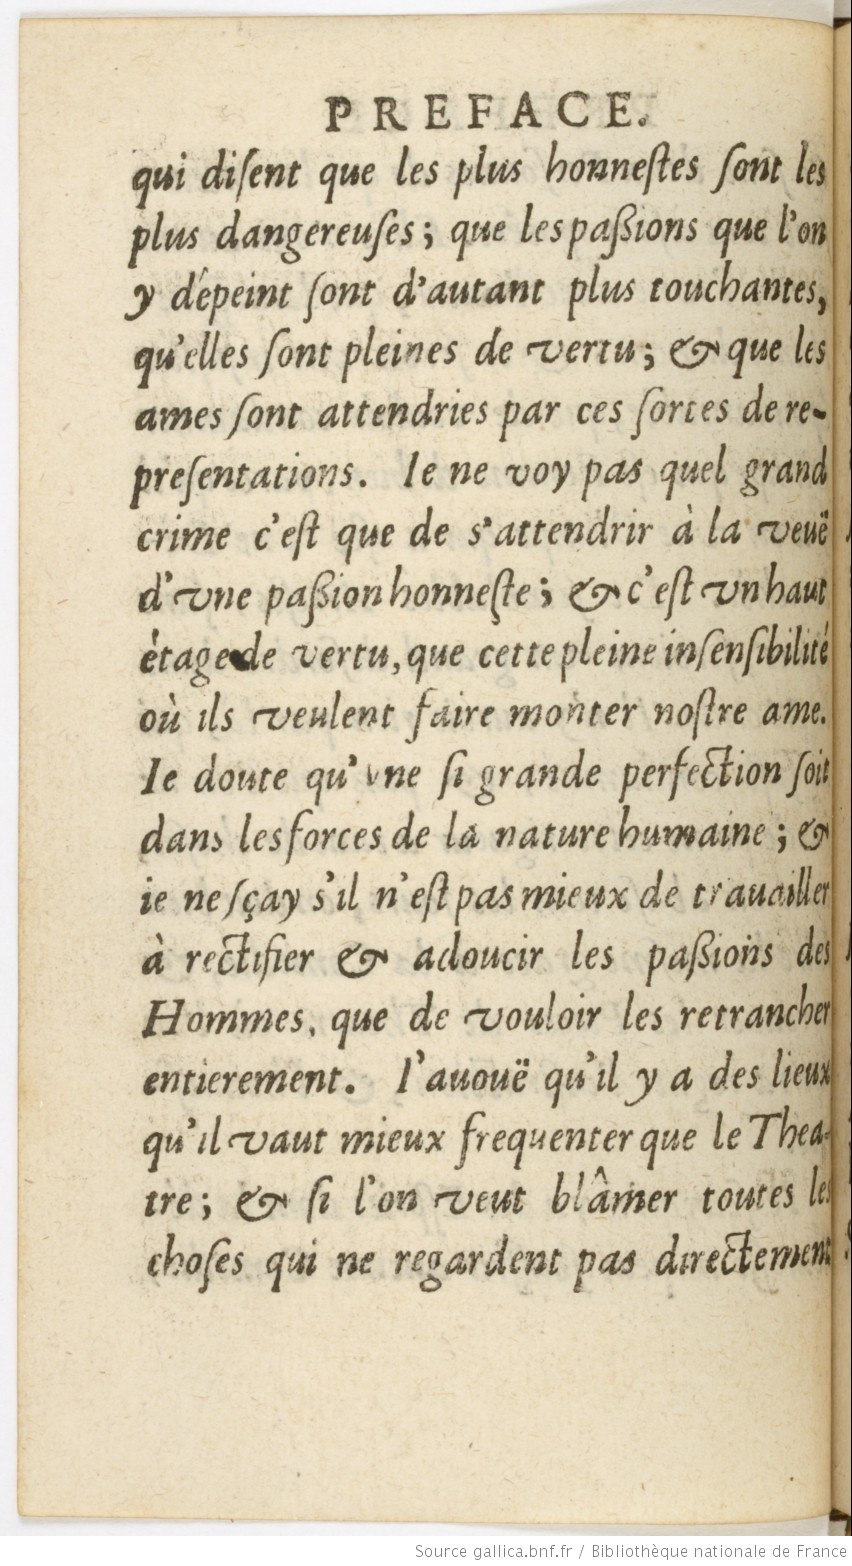 PREFACE.
qui diſent que les plus honneſtes ſont les
plus dangereuſes ; que les paßions que l'on
y dépeint ſont d'autant plus touchantes,
qu'elles ſont pleines de vertu ; & que les
ames ſont attendries par ces ſortes de re-
preſentations. Ie ne voy pas quel grand
crime c'eſt que de s'attendrir à la veuë
d'vne paßion honneſte ; & c'eſt vn haut
étage de vertu, que cette pleine inſenſibilité
où ils veulent faire monter noſtre ame.
Ie doute qu'vne ſi grande perfection ſoit
dans les forces de la nature humaine ; &
ie ne ſçay s'il n'eſt pas mieux de trauailler
à rectifier & adoucir les paßions des
Hommes, que de vouloir les retrancher
entierement. I'auouë qu'il y a des lieux
qu'il vaut mieux frequenter que le Thea-
tre ; & ſi l'on veut blâmer toutes les
choſes qui ne regardent pas directement
Source gallica.bnf.fr / Bibliothèque nationale de France